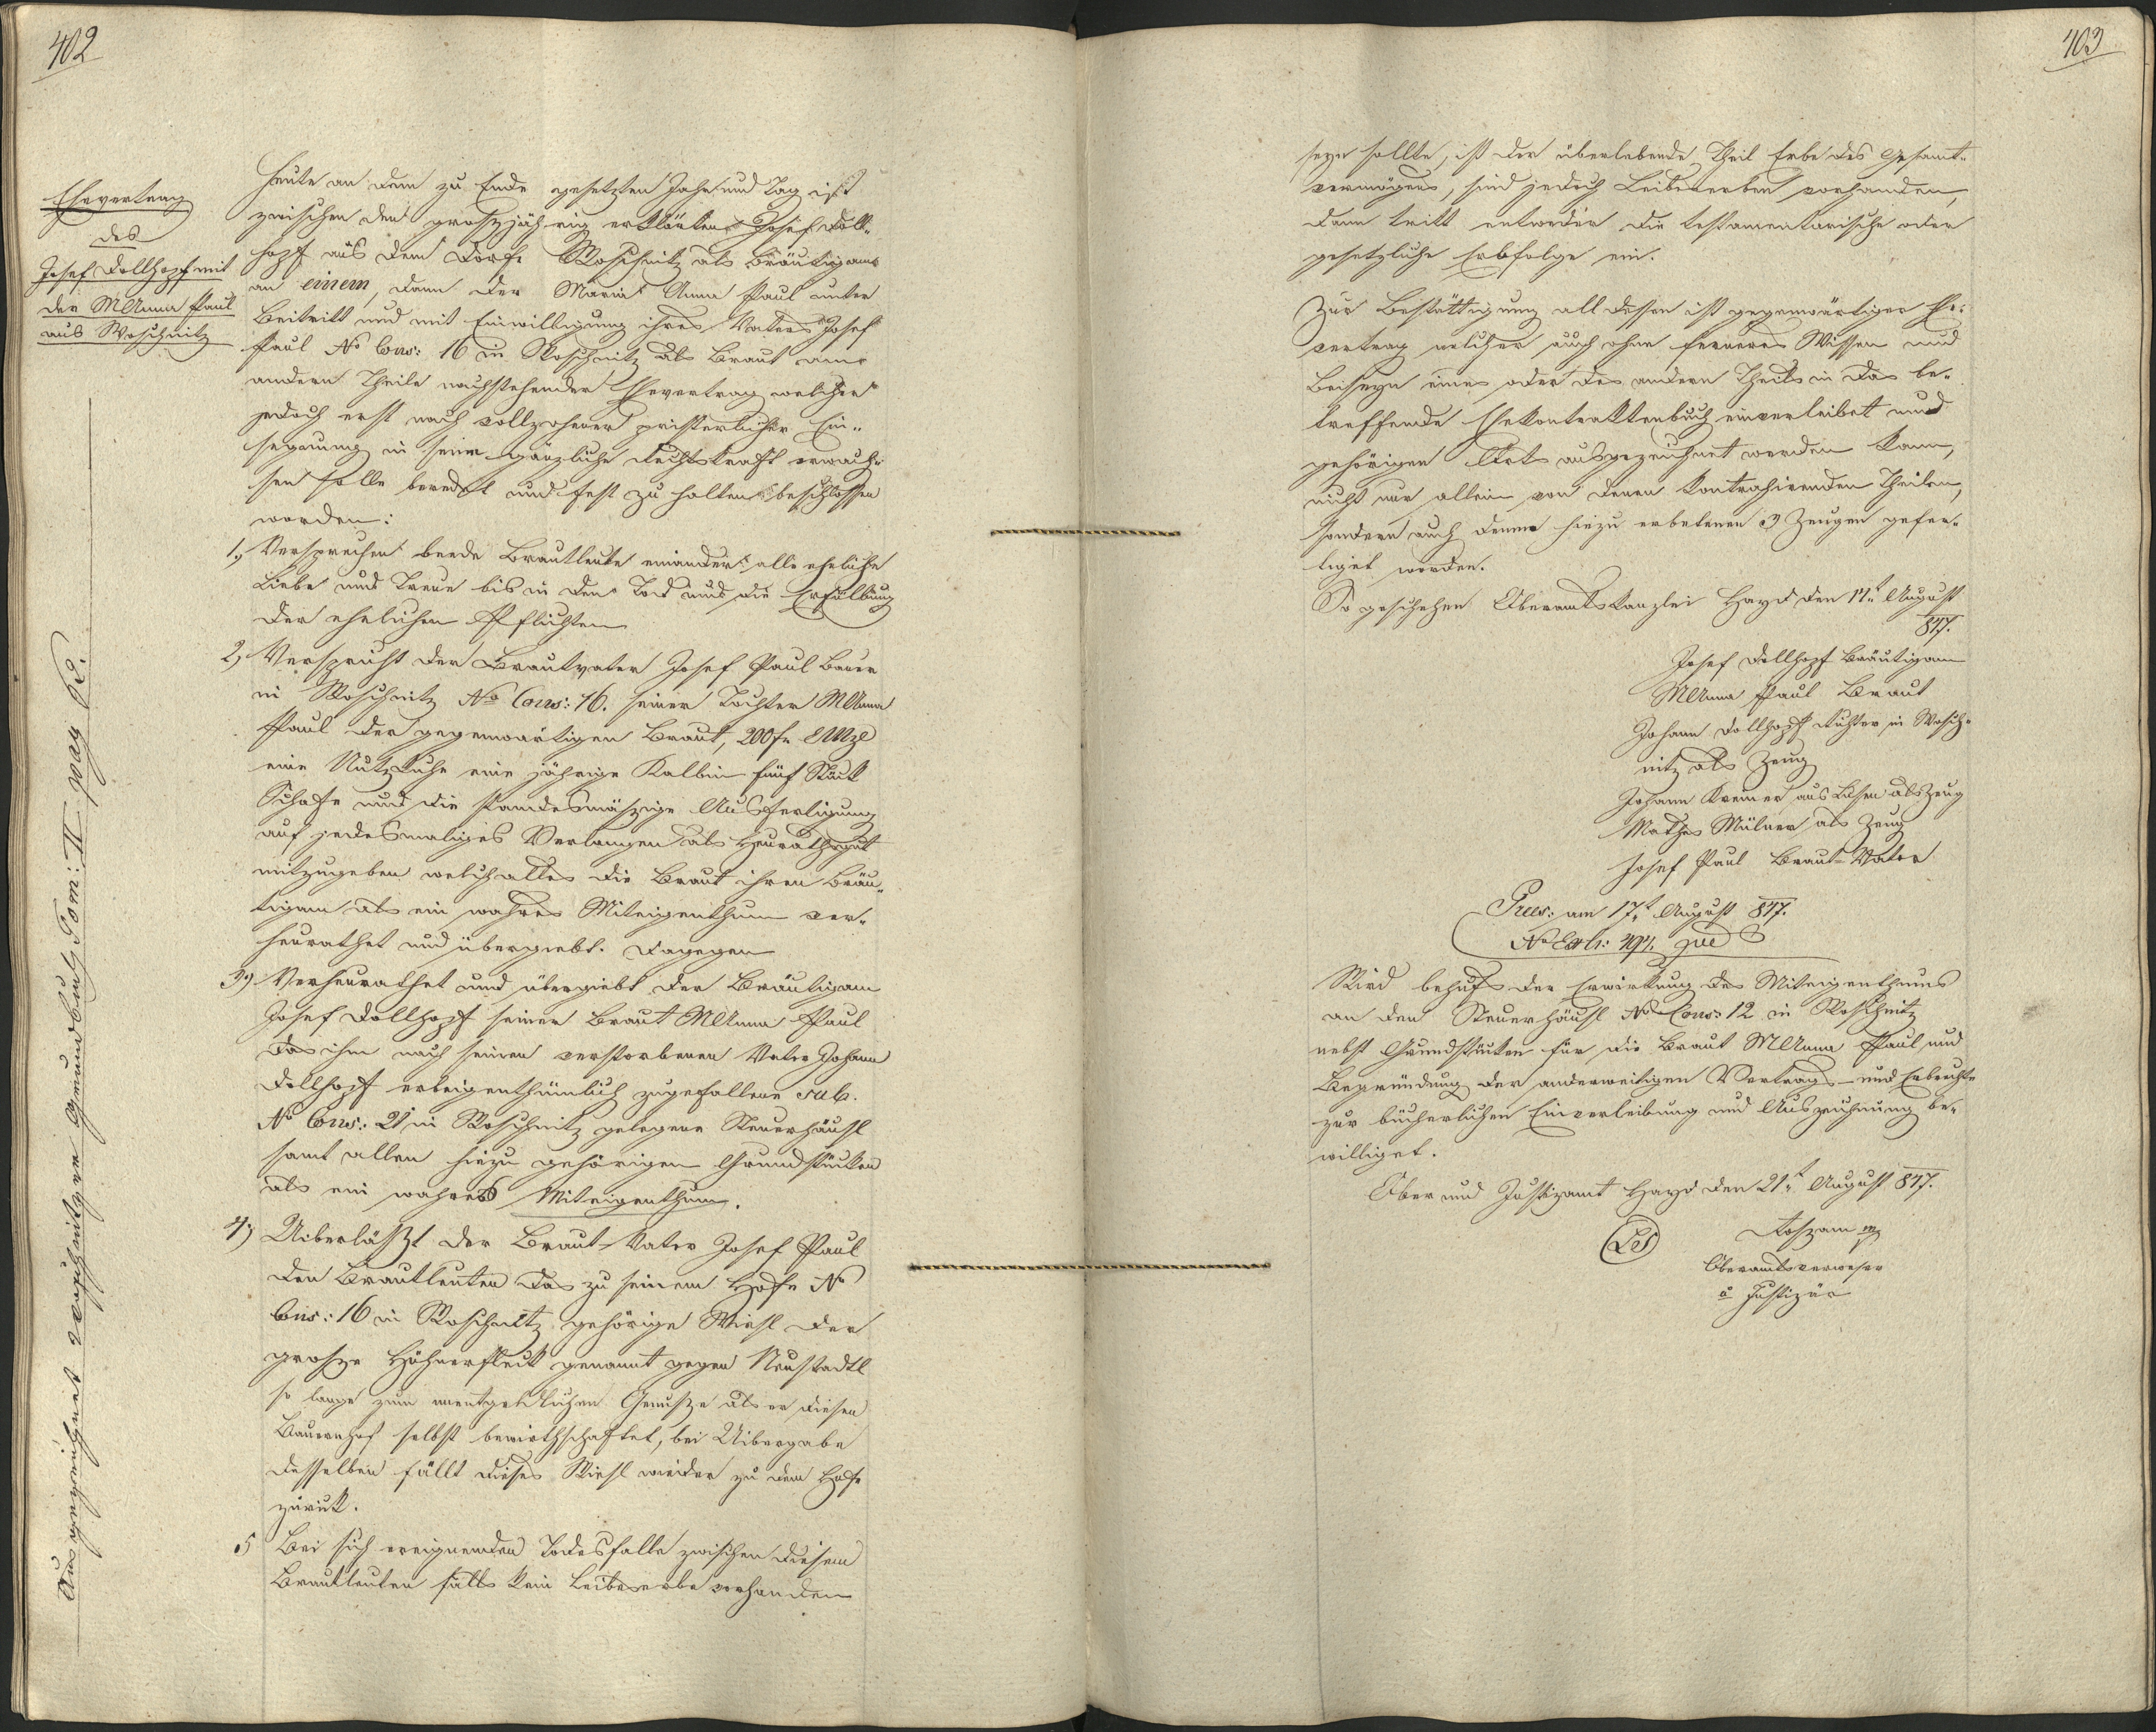 402
Ehevertrag
des
Josef Dollhopf mit
der MAnna Paul
aus Woschnitz
Ausgezeichnet Woschnitzer Grundbuch Tom: II pag 62.
Heute an dem zu Ende gesetzten Jahr und Tag ist
zwischen den groszjährig erklärten Josef Doll-
hopf aus dem Dorfe Woschnitz als Bräutigam
an einem, dann der Maria Anna Paul unter
Beitritt und mit Einwilligung ihres Vaters Josef
Paul No Cons: 16 in Woschnitz als Braut am
andern Theile nachstehender Ehevertrag welcher
jedoch erst nach vollzohener priesterlicher Ein-
segnung in seine gänzliche Rechtskraft erwach-
sen solle beredet und fest zu halten beschlossen
worden:
1., Versprechen beede Brautleute einander alle eheliche
Liebe und Treue bis in den Tod und die Erfüllung
der ehelichen Pflichten
2, Verspricht der Brautvater Josef Paul Bauer
in Woschnitz No Cons: 16. seiner Tochter MAnna
Paul der gegenwärtigen Braut, 200 fr CMze
eine Nutzkuhe eine jährige Kalbin fünf Stück
Schafe und die standesmäszige Ausfertigung
auf jedesmaliges Verlangen als Heurathsgut
mitzugeben welch alles die Braut ihren Bräu-
tigam als ein wahres Miteigenthum ver-
heurathet und übergiebt. Dagegen
3, Verheurathet und übergiebt der Bräutigam
Josef Dollhopf seiner Braut MAnna Paul
das ihm nach seinen verstorbenen Vater Johann
Dollhopf erbeigenthümlich zugefallene sub.
No Cons: 21 in Woschnitz gelegene Steuerhäusl
samt allen hiezu gehörigen Grundstücken
als ein wahres Miteigenthum.
4, Uiberläszt der Braut-Vater Josef Paul
den Brautleuten das zu seinem Hofe No
Cons: 16 in Woschnitz gehörige Wiesl der
grosze Hühnerfleck genannt gegen Neustadtl
so lange zum unentgeldlichen Genusze als er diesen
Bauernhof selbst bewirthschaftet, bei Uibergabe
desselben fällt dieses Wiesl wieder zu dem Hofe
zurück.
5 Bei sich ereignenden Todesfalle zwischen diesen
Brautleuten falls kein Leibeserbe vorhanden
403
seyn sollte, ist der überlebende Theil Erbe des Gesamt-
vermögens, sind jedoch Leibeserben vorhanden,
dann tritt entweder die testamentarische oder
gesetzliche Erbfolge ein.
Zur Bestättigung all dessen ist gegenwärtiger Ehe-
vertrag welcher auch ohne ferneres Wissen und
Beiseyn eines oder des andern Theils in das be-
treffende Ehekontraktenbuch einverleibet und
gehörigen Orts ausgezeichnet werden kann,
nicht nur allein von denen kontrahirenden Theilen,
sondern auch denen hiezu erbetenen 3 Zeugen gefer-
tiget worden.
So geschehen Oberamtskanzlei Hayd den 17t August
847.
Josef Dollhopf Bräutigam
MAnna Paul Braut
Johann Dollhopf Richter in Wosch-
nitz als Zeug
Johann Kreiner aus als Zeug
Mathes Mülner als Zeug
Josef Paul Braut-Vater
Pres: am 17t August 847.
No Exh: jud
Wird behufs der Erwirkung des Miteigenthums
an den Steuerhäusl No Cons: 12 in Woschnitz
nebst Grundstücken für die Braut MAnna Paul und
Begründung der anderweitigen Vertrags- und Erbrechte
zur bücherlichen Einverleibung und Auszeichnung be-
williget.
Ober und Justizamt Hayd den 21t August 847.
LS
Oberamtsverweser
Justiziär